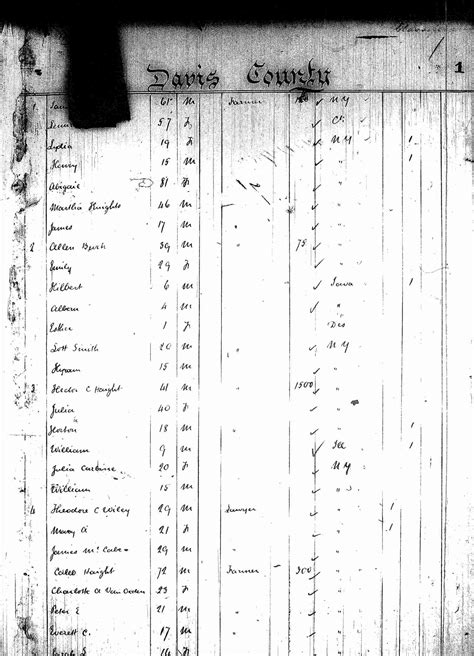 Davis County 1
1 61 M Farmer ✓ NY
57 F ✓ Ct
Lydia 19 F ✓ NY 1
Henry 15 M ✓ " 1
Abigail 81 F ✓ "
Martha Knights 46 M " ✓ "
James 17 M ✓ "
2 Allen Burk 39 M " 75 ✓ "
Emily 29 F ✓ "
Hilbert 6 M ✓ Iowa 1
Albern 4 M ✓ "
Esther 1 F ✓ Des
Lott Smith 20 M ✓ NY
Hyram 15 M ✓ "
3 Hector C Haight 41 M " 1500 ✓ "
Julia 40 F ✓ "
Horton 18 M " ✓ " 1
William 9 M ✓ Ill 1
Julia 20 F ✓ NY
William 15 M ✓ "
4 Theodore C Wiley 29 M Sawyer ✓ " 1
Mary A 21 F ✓ " 1
James McCabe 29 M " ✓ "
Caleb Haight 72 M Farmer 300 ✓ "
Charlotte A Van Orden 23 F ✓ "
Peter E 21 M ✓ "
Everett C. 17 M ✓ " 1
16 F